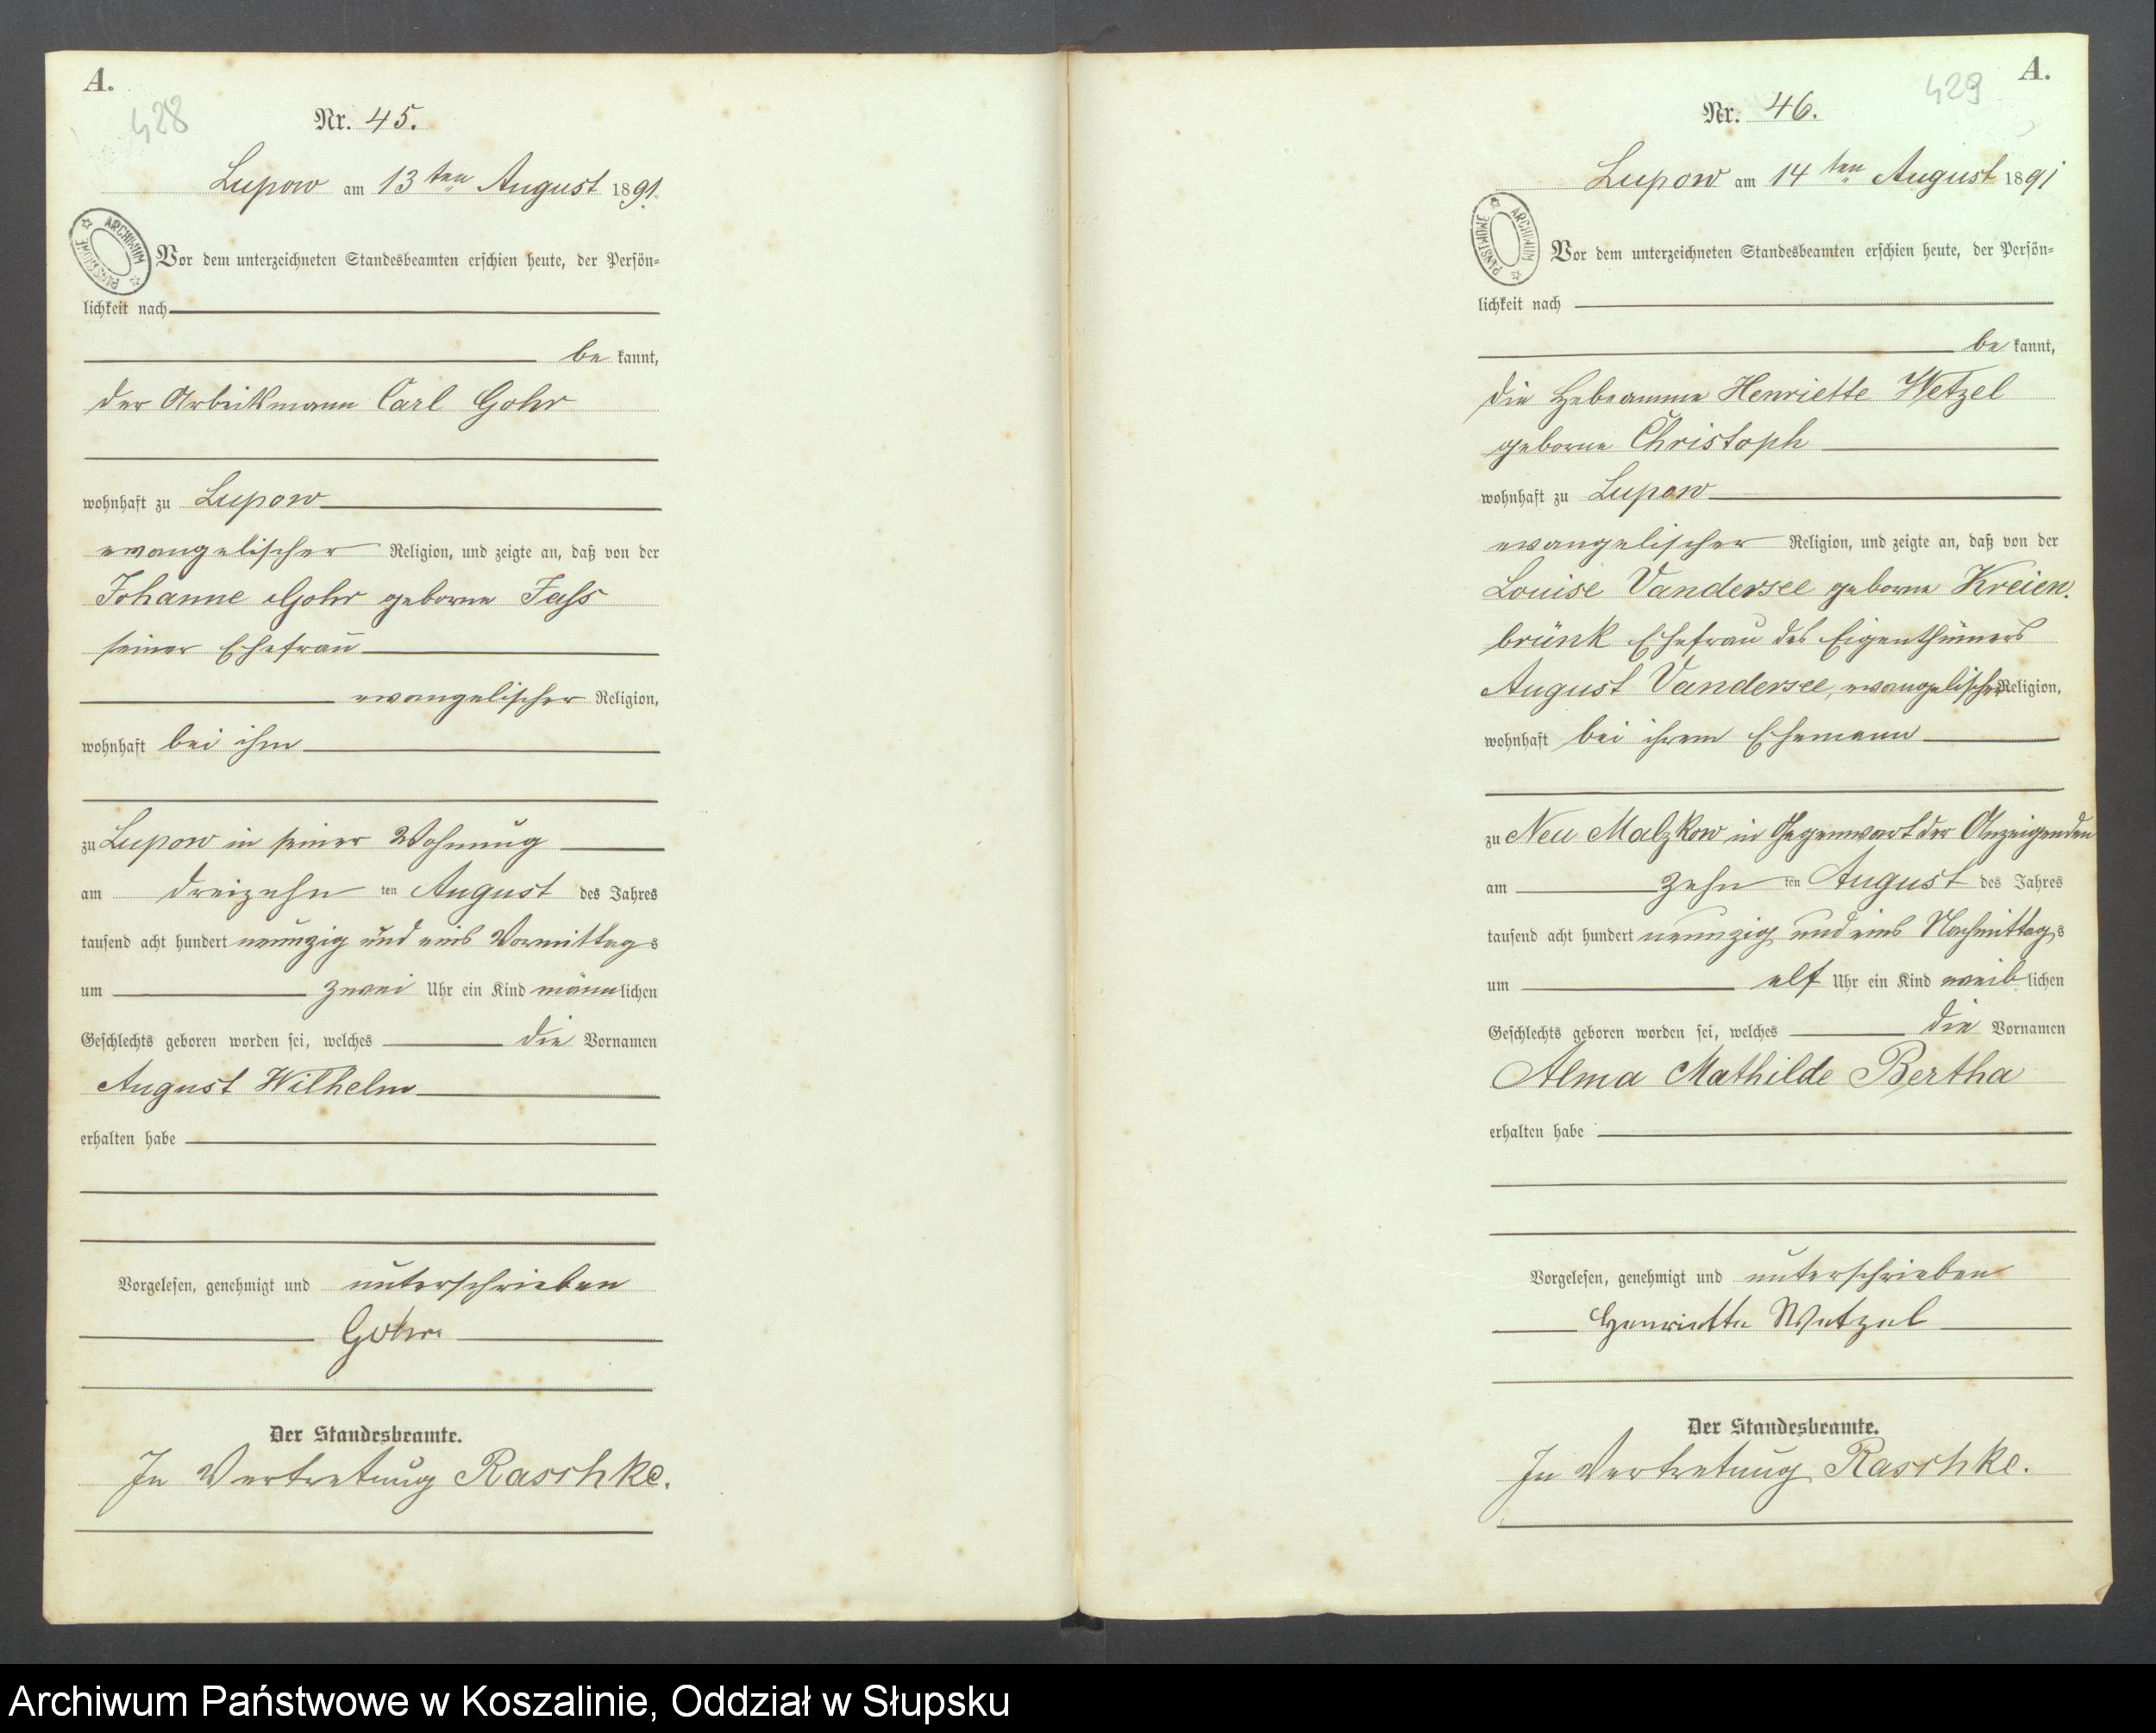 A.
428
Nr. 45.
Lupow am 13ten August 1891.
ARCHIWUM PAŃSTWOWE
Vor dem unterzeichneten Standesbeamten erschien heute, der Persön=
lichkeit nach
be kannt,
der Arbeitsmann Carl Gohr
wohnhaft zu Lupow
evangelischer Religion, und zeigte an, daß von der
Johanne Gohr geborne Fass
seiner Ehefrau
evangelischer Religion,
wohnhaft bei ihm
zu Lupow in seiner Wohnung
am dreizehn ten August des Jahres
tausend acht hundert neunzig und eins Vormittags
um zwei Uhr ein Kind männlichen
Geschlechts geboren worden sei, welches die Vornamen
August Wilhelm
erhalten habe
Vorgelesen, genehmigt und unterschrieben
Gohr
Der Standesbeamte.
In Vertretung Raschke.
A.
429
Nr. 46.
Lupow am 14ten August 1891
ARCHIWUM PAŃSTWOWE
Vor dem unterzeichneten Standesbeamten erschien heute, der Persön=
lichkeit nach
be kannt,
die Hebeamme Henriette Wetzel
geborne Christoph
wohnhaft zu Lupow
evangelischer Religion, und zeigte an, daß von der
Louise Vandersee geborne Kreien.
brünk Ehefrau des Eigenthümers
August Vandersee, evangelischer Religion,
wohnhaft bei ihrem Ehemann
zu Neu Malzkow in Gegenwart der Anzeigenden
am zehn ten August des Jahres
tausend acht hundert neunzig und eins Nachmittags
um elf Uhr ein Kind weiblichen
Geschlechts geboren worden sei, welches die Vornamen
Alma Mathilde Bertha
erhalten habe
Vorgelesen, genehmigt und unterschrieben
Henriette Wetzel
Der Standesbeamte.
In Vertretung Raschke.
Archiwum Państwowe w Koszalinie, Oddział w Słupsku